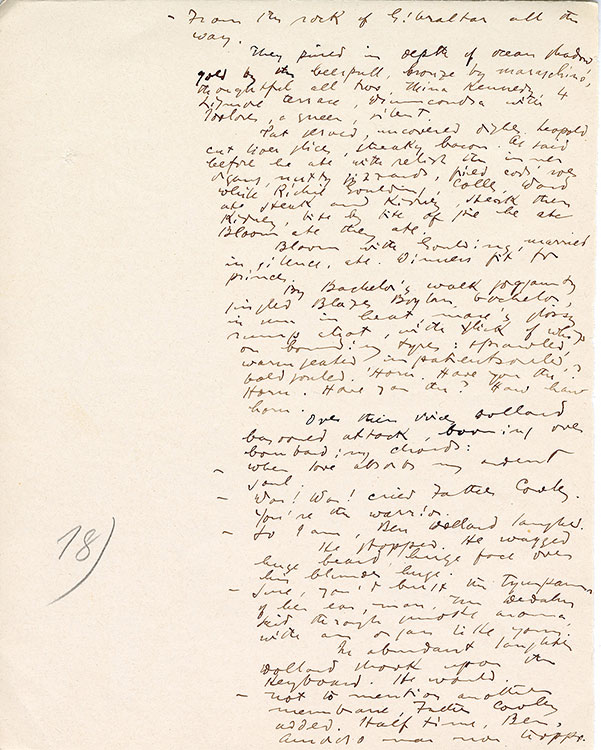 — From the rock of Gibraltar all the
way.
They pined in depth of ocean shadow,
gold by the beerpull, bronze by maraschino,
thoughtful all two, Mina Kennedy, 4
Lismore terrace, Drumcondra with
Dolores, a queen, silent.
Pat served, uncovered dishes. Leopold
cut liver slices, steaky bacon. As said
before he ate with relish the inner
organs, nutty gizzards, fried cods' roes
while Richie Goulding, Collis, Ward
ate steak and kidney, steak then
kidney, bite by bite of pie he ate
Bloom ate they ate.
Bloom with Goulding, married
in silence, ate. Dinners fit for
princes.
By Bachelor's walk jogjaunty
jingled Blazes Boylan, bachelor,
in sun in heat, mare's glossy
rump atrot, with flick of whip,
on bounding tyres: sprawled,
warmseated, impatience,
boldsouled. Horn. Have you the?
Horn. Have you the? Haw haw
horn.
Over their voices Dollard
bassooned attack, booming over
bombarding chords:
— When love absorbs my ardent
soul.
— War! War! cried Father Cowley.
You're the warrior.
— So I am, Ben Dollard laughed.
He stopped. He wagged
huge beard, huge face over
his blunder huge.
— Sure, you'd burst the tympanum
of her ear, man, Mr Dedalus
said through smoke aroma,
with an organ like yours.
In abundant laughter
Dollard shook upon the
keyboard. He would.
— Not to mention another
membrane, Father Cowley
added. Half time, Ben.
Amoroso ma non troppo.
18)